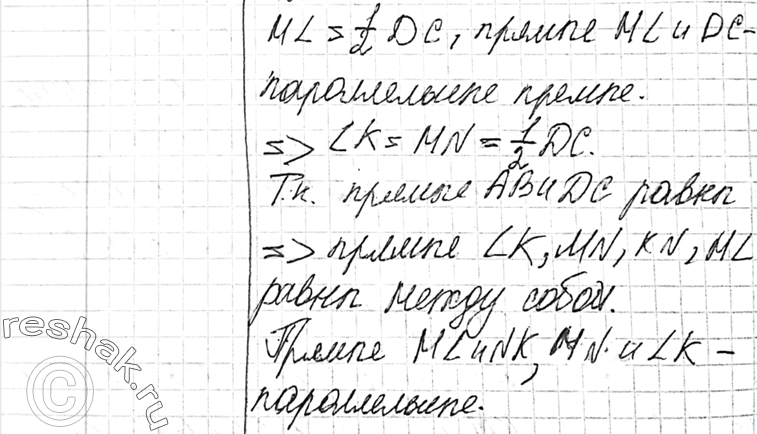 ML = 1/2 DC, прямые ML и DC -
параллельные прямые.
=> LK = MN = 1/2 DC.
Т.к. прямые AB и DC равны
=> прямые LK, MN, KN, ML
равны между собой.
Прямые ML и NK, MN и LK -
параллельные.
reshak.ru
©